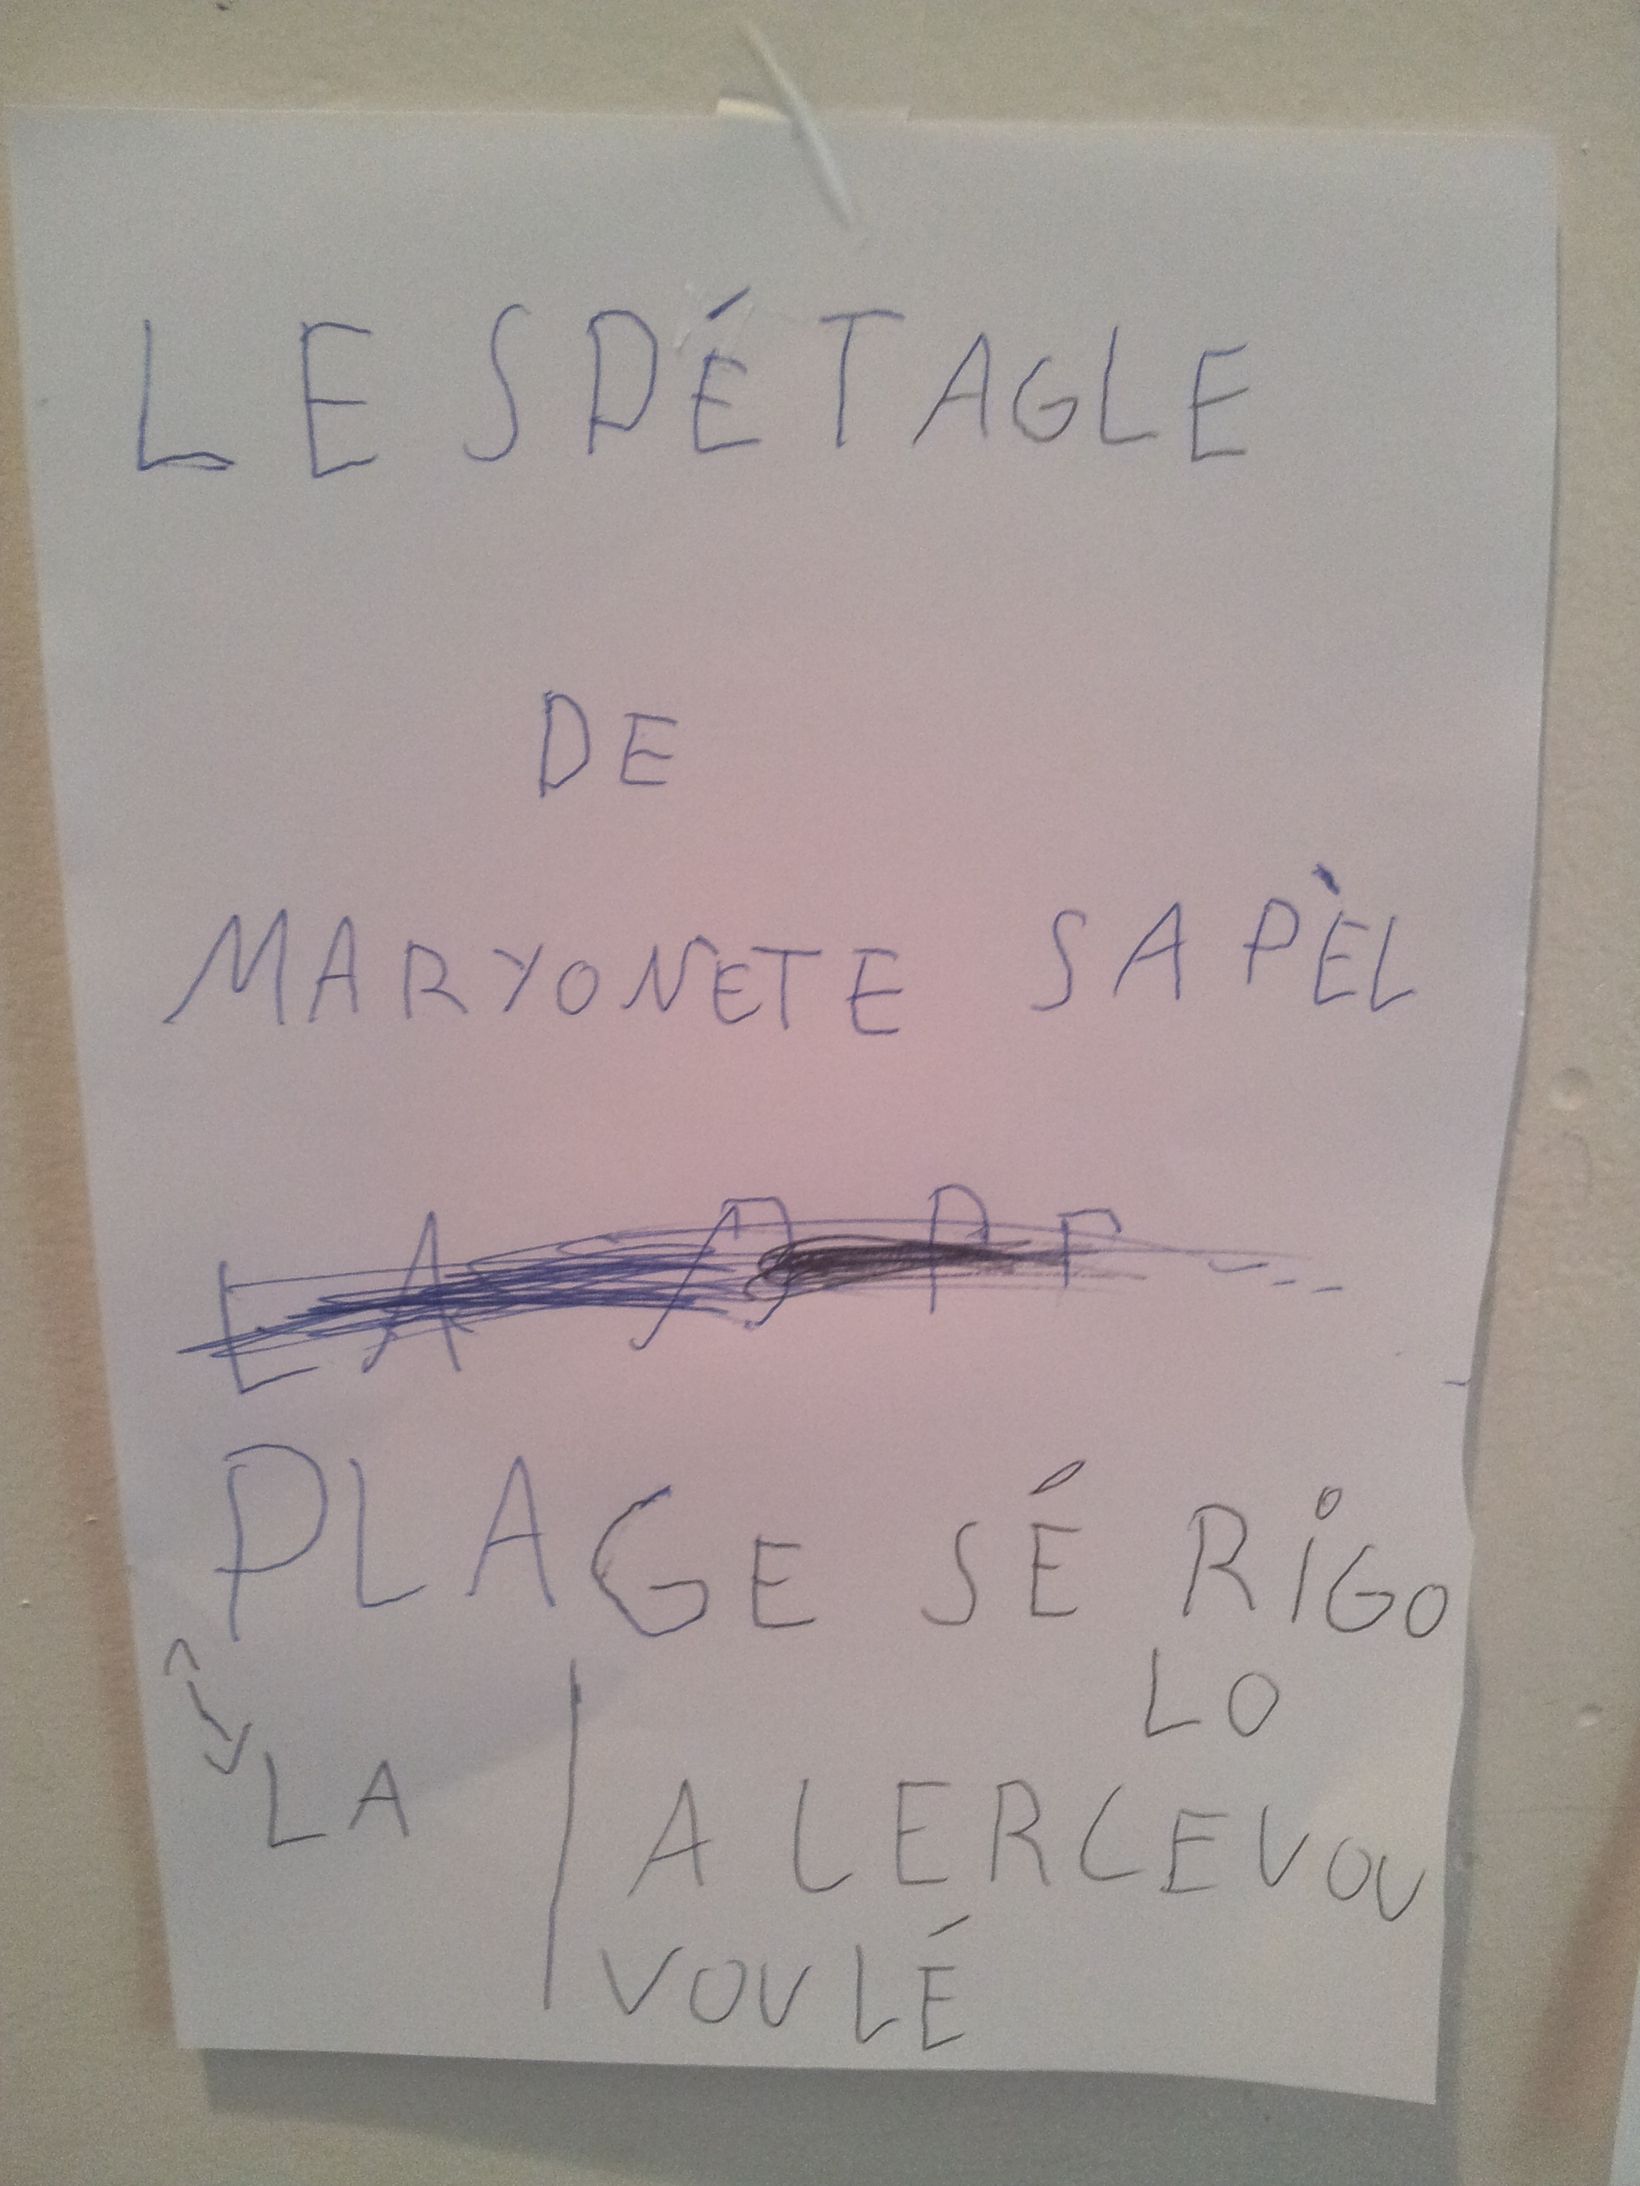 LE SPÉTAGLE
DE
MARYONETE SAPÈL
PLAGE SÉ RIGO
LO
LA
ALERCEVOU
VOULÉ